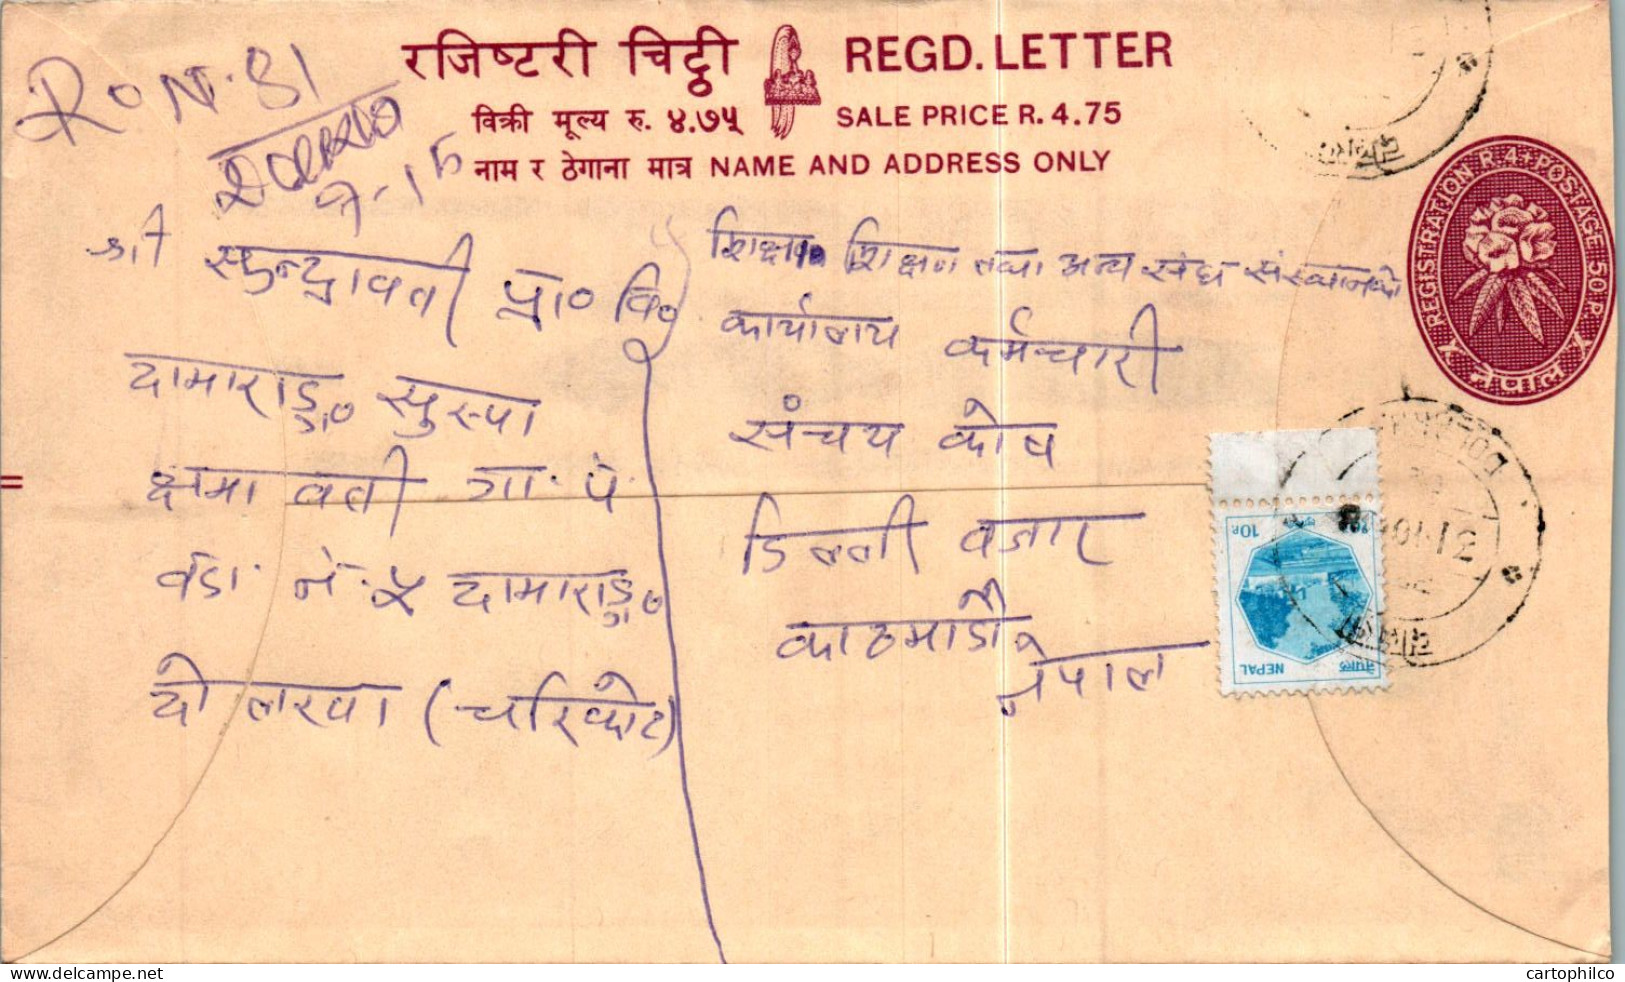 रजिष्टरी चिठ्ठी REGD. LETTER
विक्री मूल्य रु. ४.७५ SALE PRICE R. 4.75
नाम र ठेगाना मात्र NAME AND ADDRESS ONLY
RoN. 81
श्री सुन्द्रावती प्रा० वि०
दामाराङ्ग० सुस्पा
क्षमावती गा. पं.
वडा. नं. ५ दामाराङ्ग०
दोलखा (चरिकोट)
शिक्षण तथा अन्य संघ संस्थानको
कार्यालय कर्मचारी
संचय कोष
डिल्ली बजार
काठमाडौं
नेपाल
REGISTRATION R 4. POSTAGE 50 P.
नेपाल
10P
NEPAL
नेपाल
delcampe.net
cartophilco